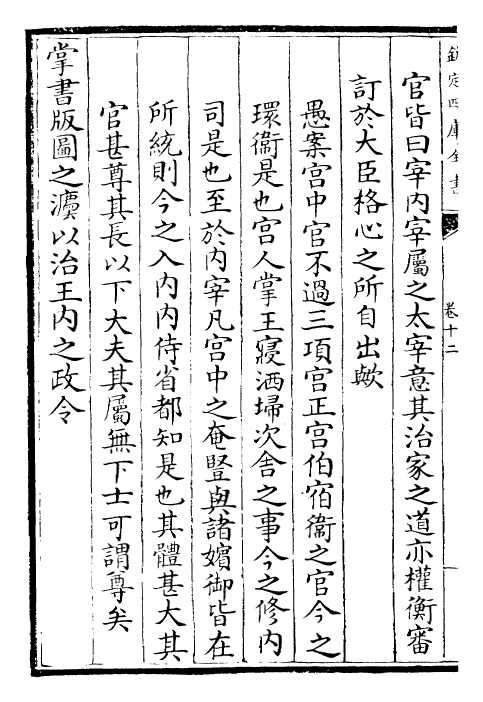 欽定四庫全書
卷十二
官皆曰宰内宰屬之太宰意其治家之道亦權衡審
訂於大臣格心之所自出歟
愚案宫中官不過三項宫正宫伯宿衞之官今之
環衞是也宫人掌王寢洒埽次舍之事今之修内
司是也至於内宰凡宫中之奄豎與諸嬪御皆在
所統則今之入内内侍省都知是也其體甚大其
官甚尊其長以下大夫其屬無下士可謂尊矣
掌書版圖之灋以治王内之政令